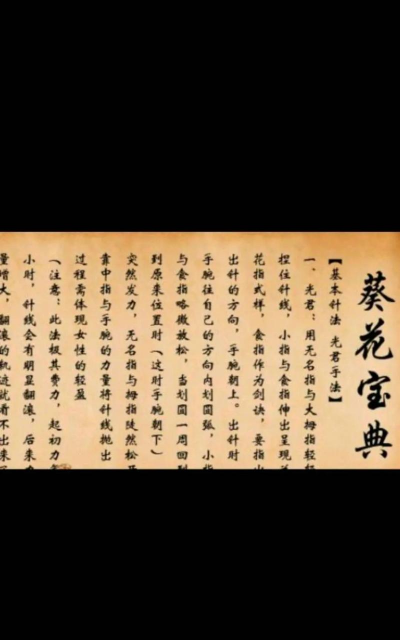 葵花宝典
【基本针法 光君手法】
一、光君：用无名指与大拇指轻轻
捏住针线，小指与食指伸出呈现
花指式样，食指作为剑诀，要指
出针的方向，手腕朝上。出针时
手腕往自己的方向内划圆弧，小指
与食指略微放松，当划圆一周回到
到原来位置时（这时手腕朝下）
突然发力，无名指与拇指陡然松
靠中指与手腕的力量将针线抛出
过程需体现女性的轻盈
（注意：此法极其费力，起初力气
小时，针线会有明显翻滚，后来
量增大，翻滚的轨迹就看不出来